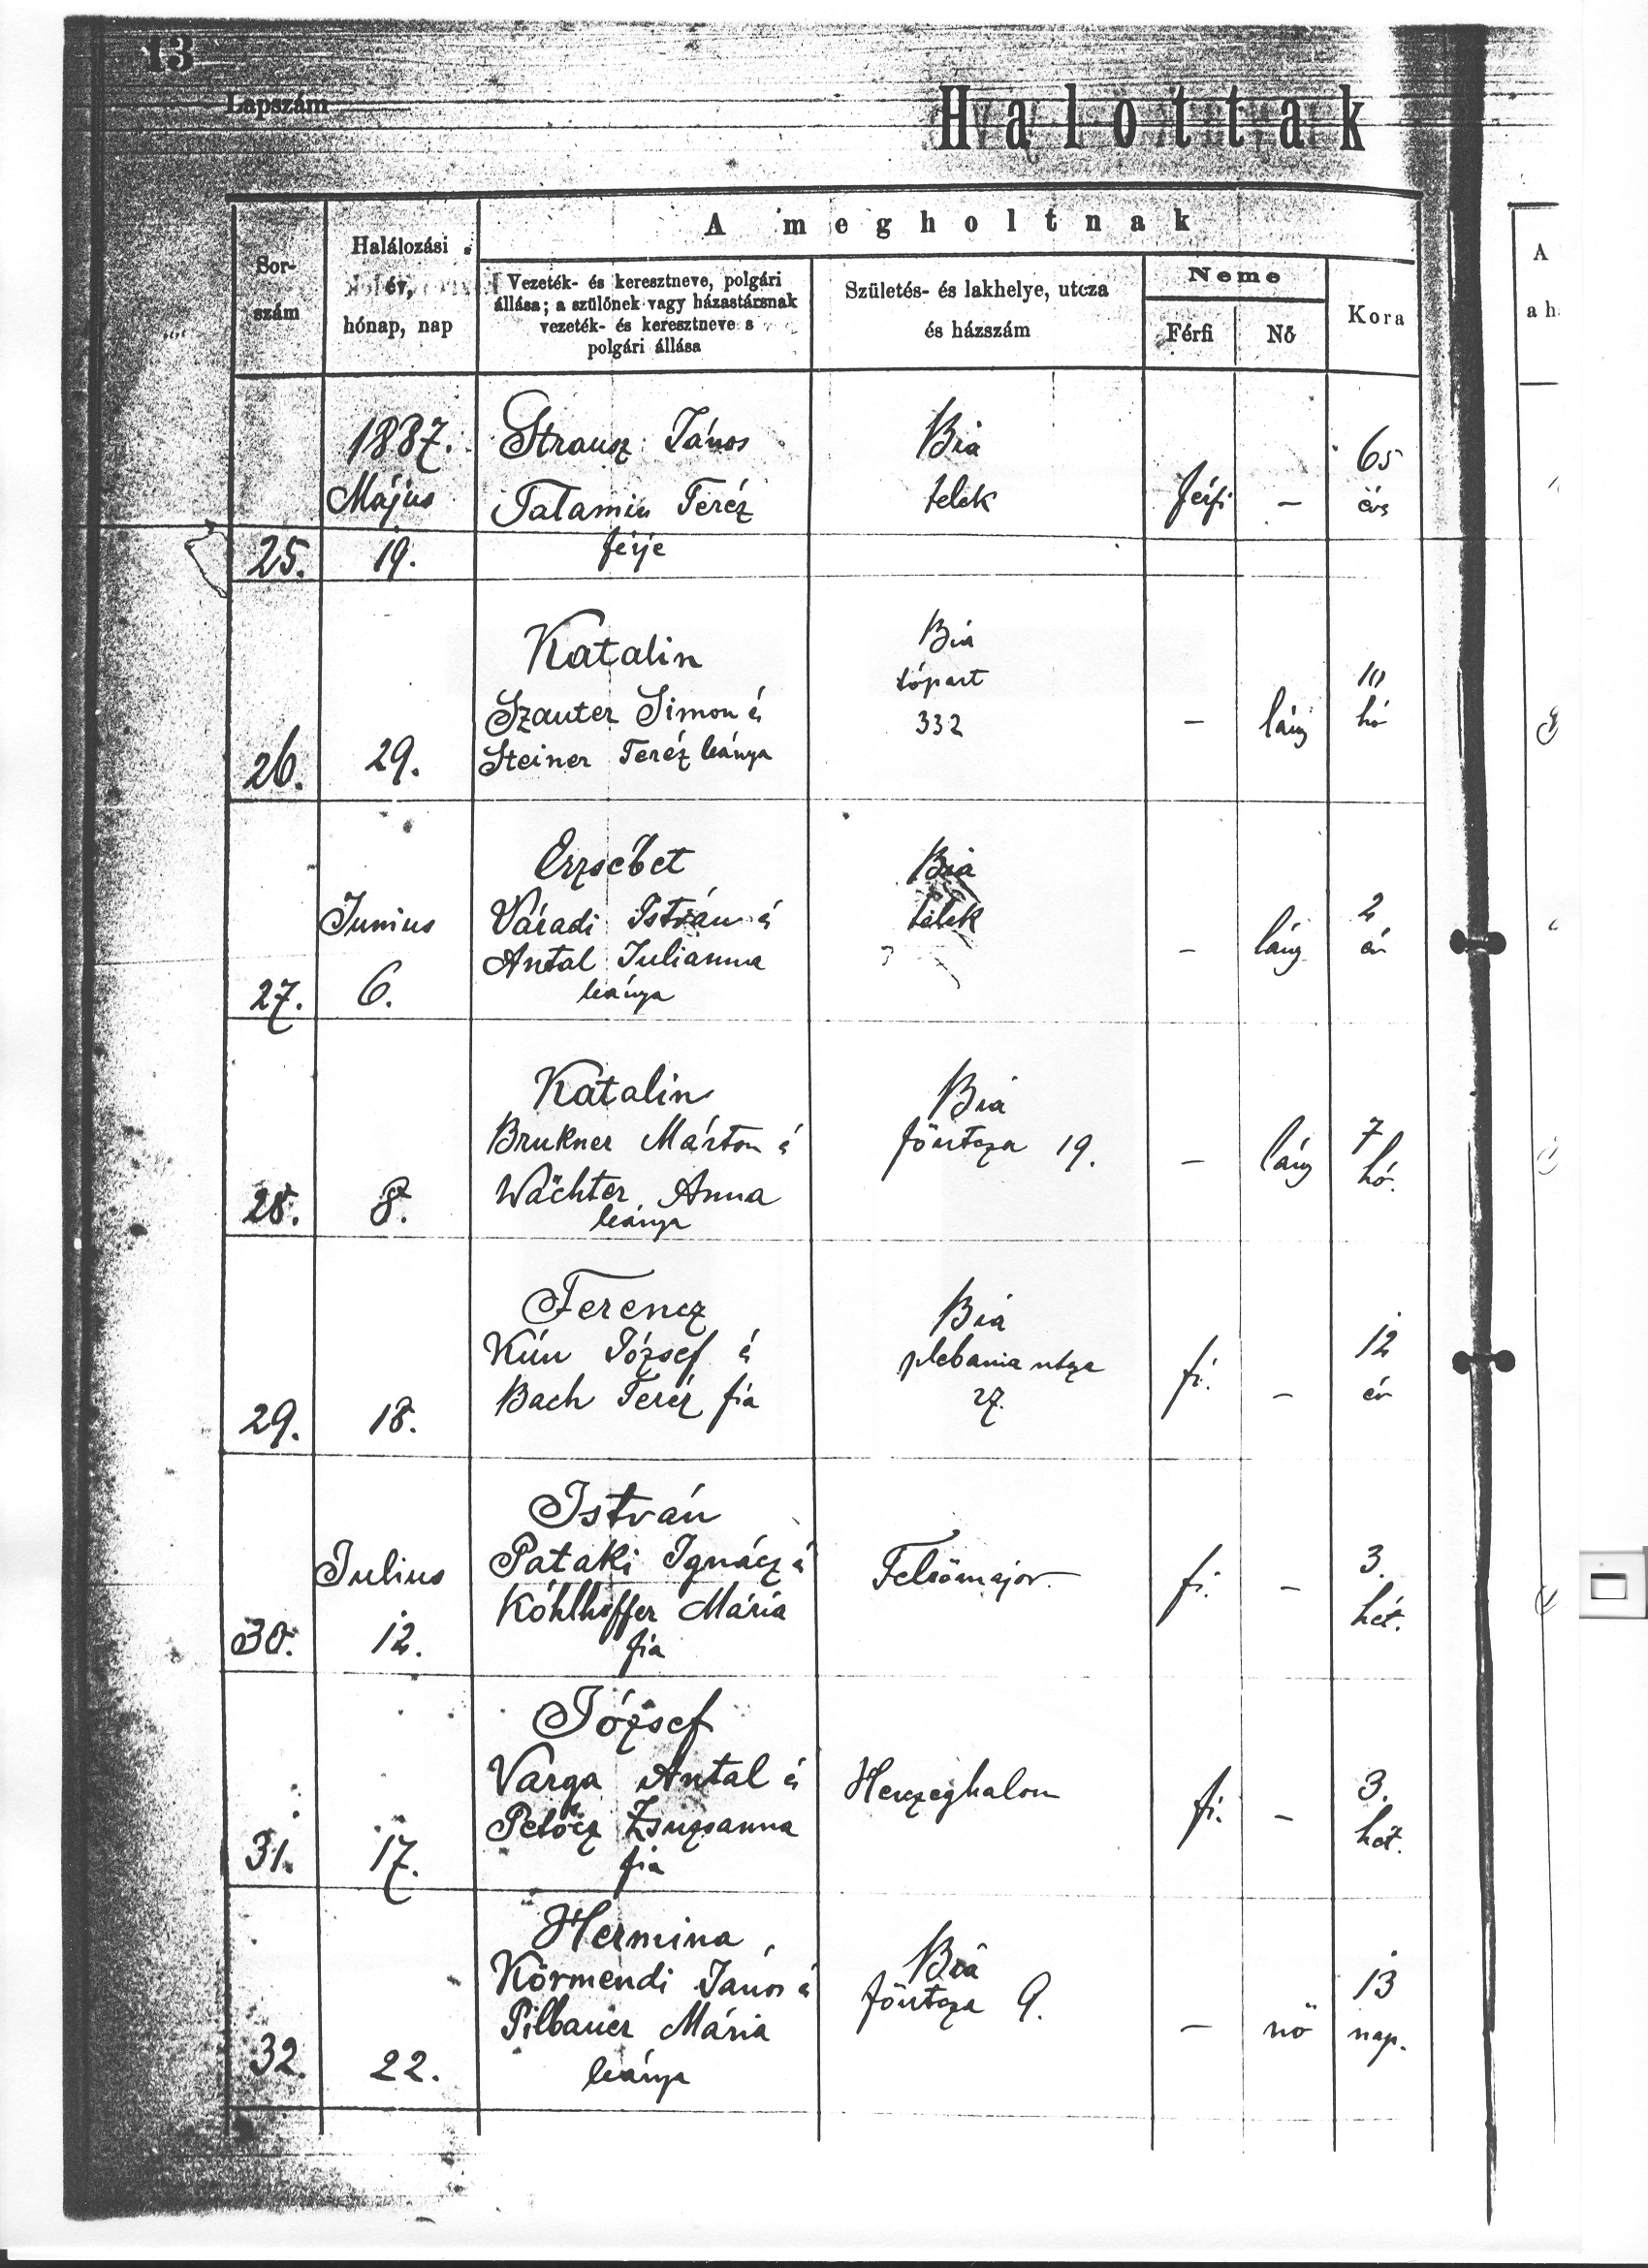 13
Lapszám
Halottak
A megholtnak
Sor-
szám
Halálozási
év,
hónap, nap
Vezeték- és keresztneve, polgári
állása; a szülőnek vagy házastársnak
vezeték- és keresztneve s
polgári állása
Születés- és lakhelye, utcza
és házszám
Neme
Férfi
Nő
Kora
A
a h
1887.
Május
19.
25.
Strausz János
Talamin Teréz
férje
Bia
telek
férfi
–
65
éves
26.
29.
Katalin
Szauter Simon é
Steiner Teréz leánya
Bia
tópart
332
–
lány
10
hó
27.
Junius
6.
Erzsébet
Váradi István é
Antal Julianna
leánya
Bia
telek
–
lány
2
év
28.
8.
Katalin
Brukner Márton é
Wächter Anna
leánya
Bia
főutcza 19.
–
lány
7
hó.
29.
18.
Ferencz
Kún József é
Bach Teréz fia
Bia
plebania utcza
27.
fi.
–
12
év
30.
Julius
12.
István
Pataki Ignácz é
Kóhlhoffer Mária
fia
Felsőmajor
fi.
–
3.
hét.
31.
17.
József
Varga Antal é
Petőcz Zsuzsanna
fia
Herczeghalom
fi.
–
3.
hét.
32.
22.
Hermina
Körmendi János é
Pilbauer Mária
leánya
Bia
főutcza 9.
–
nő
13
nap.